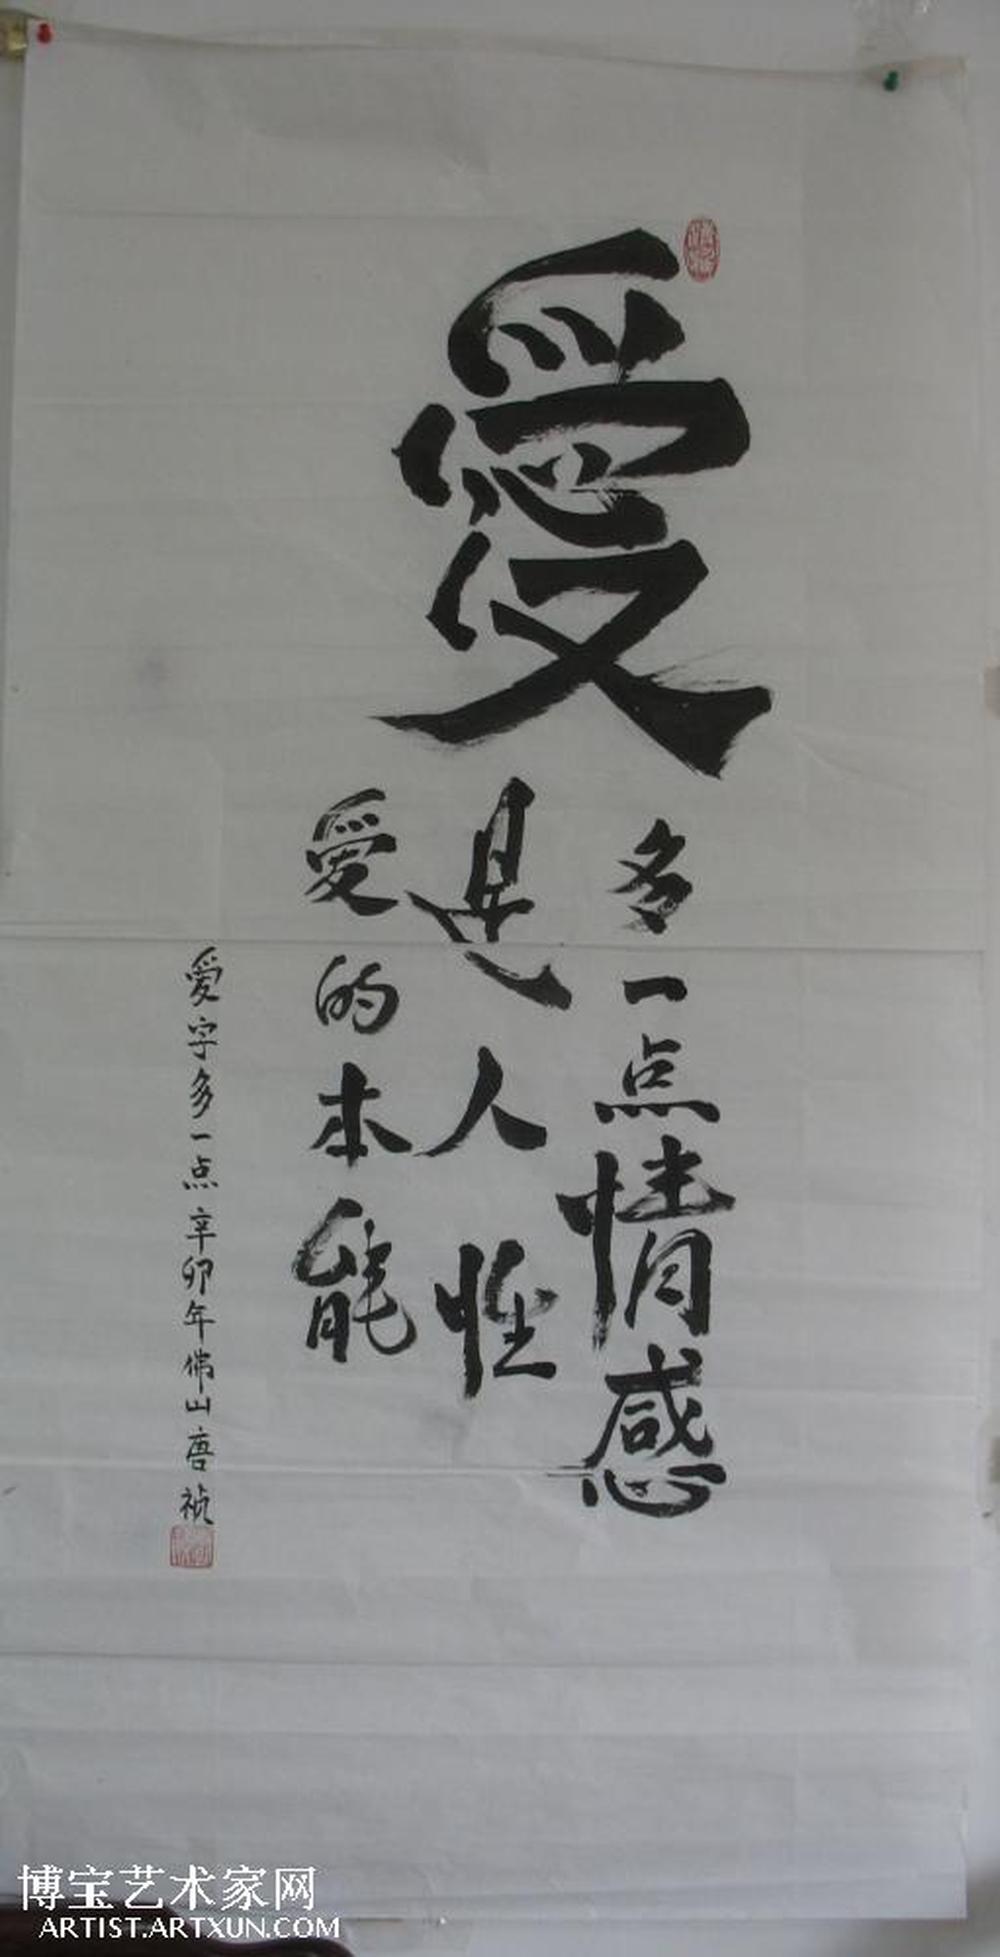 愛
多一点情感
是人性
愛的本能
愛字多一点辛卯年佛山唐祯
博宝艺术家网
ARTIST.ARTXUN.COM